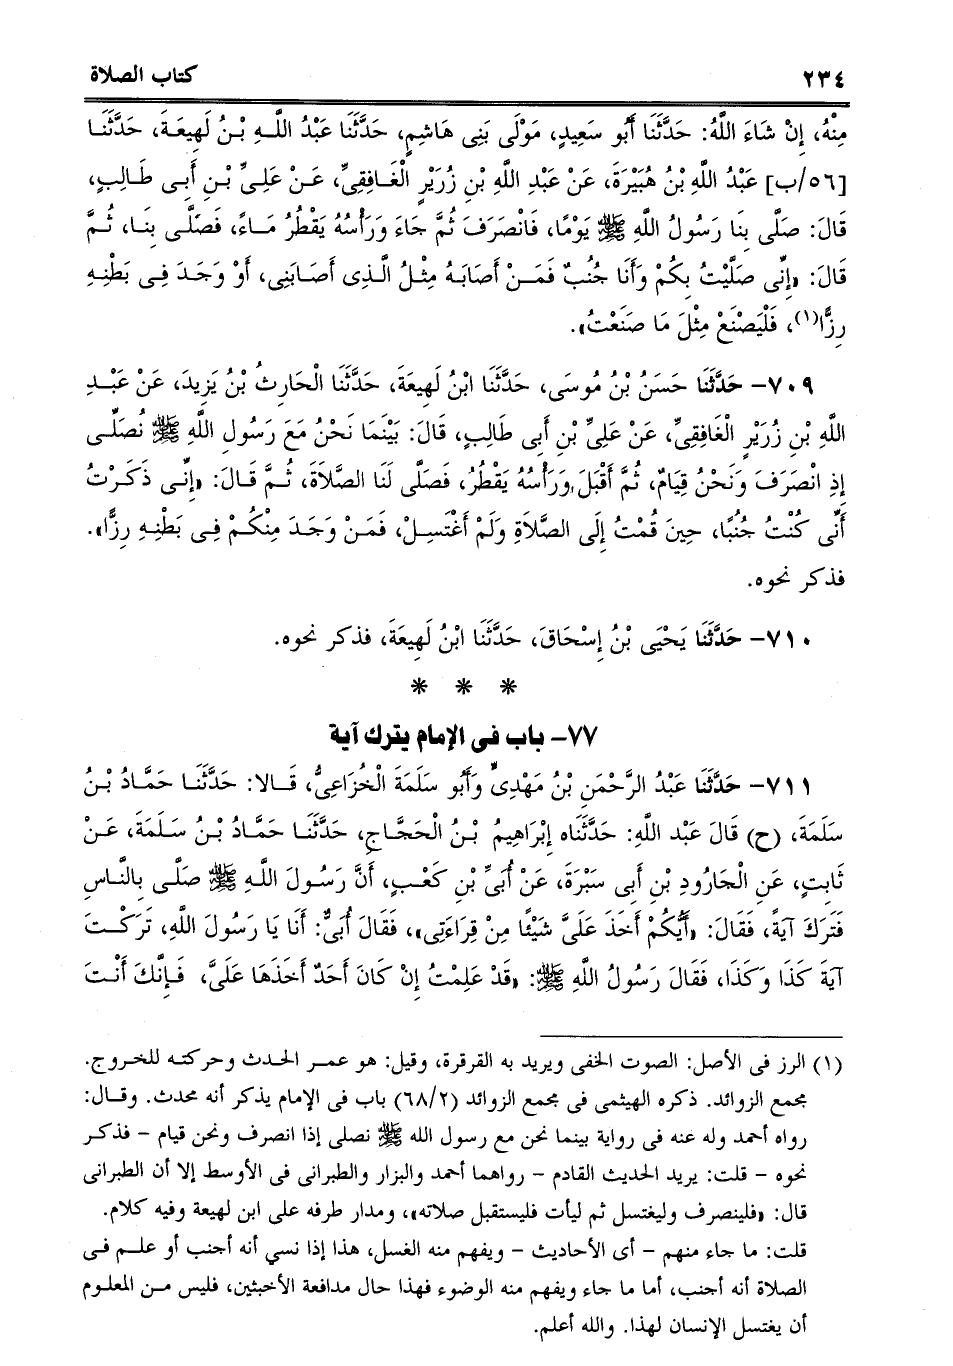 ٢٣٤ كتاب الصلاة
مِنْهُ، إِنْ شَاءَ اللَّهُ: حَدَّثَنَا أَبُو سَعِيدٍ، مَوْلَى بَنِى هَاشِمٍ، حَدَّثَنَا عَبْدُ اللَّهِ بْنُ لَهِيعَةَ، حَدَّثَنَا
[٥٦/ب] عَبْدُ اللَّهِ بْنُ هُبَيْرَةَ، عَنْ عَبْدِ اللهِ بْنِ زُرَيْرٍ الْغَافِقِىِّ، عَنْ عَلِىِّ بْنِ أَبِى طَالِبٍ،
قَالَ: صَلَّى بِنَا رَسُولُ اللَّهِ ﷺ يَوْمًا، فَانْصَرَفَ ثُمَّ جَاءَ وَرَأْسُهُ يَقْطُرُ مَاءً، فَصَلَّى بِنَا، ثُمَّ
قَالَ: «إِنِّى صَلَّيْتُ بِكُمْ وَأَنَا جُنُبٌ فَمَنْ أَصَابَهُ مِثْلُ الَّذِى أَصَابَنِى، أَوْ وَجَدَ فِى بَطْنِهِ
رِزًّا(١)، فَلْيَصْنَعْ مِثْلَ مَا صَنَعْتُ».
٧٠٩- حَدَّثَنَا حَسَنُ بْنُ مُوسَى، حَدَّثَنَا ابْنُ لَهِيعَةَ، حَدَّثَنَا الْحَارِثُ بْنُ يَزِيدَ، عَنْ عَبْدِ
اللَّهِ بْنِ زُرَيْرٍ الْغَافِقِىِّ، عَنْ عَلِىِّ بْنِ أَبِى طَالِبٍ، قَالَ: بَيْنَمَا نَحْنُ مَعَ رَسُولِ اللَّهِ ﷺ نُصَلِّى
إِذِ انْصَرَفَ وَنَحْنُ قِيَامٌ، ثُمَّ أَقْبَلَ وَرَأْسُهُ يَقْطُرُ، فَصَلَّى لَنَا الصَّلاَةَ، ثُمَّ قَالَ: «إِنِّى ذَكَرْتُ
أَنِّى كُنْتُ جُنُبًا، حِينَ قُمْتُ إِلَى الصَّلاَةِ وَلَمْ أَغْتَسِلْ، فَمَنْ وَجَدَ مِنْكُمْ فِى بَطْنِهِ رِزًّا».
فذكر نحوه.
٧١٠- حَدَّثَنَا يَحْيَى بْنُ إِسْحَاقَ، حَدَّثَنَا ابْنُ لَهِيعَةَ، فذكر نحوه.
* * *
٧٧- باب فى الإمام يترك آية
٧١١- حَدَّثَنَا عَبْدُ الرَّحْمَنِ بْنُ مَهْدِىٍّ وَأَبُو سَلَمَةَ الْخُزَاعِىُّ، قَالا: حَدَّثَنَا حَمَّادُ بْنُ
سَلَمَةَ، (ح) قَالَ عَبْد اللَّهِ: حَدَّثَنَاه إِبْرَاهِيمُ بْنُ الْحَجَّاجِ، حَدَّثَنَا حَمَّادُ بْنُ سَلَمَةَ، عَنْ
ثَابِتٍ، عَنِ الْجَارُودِ بْنِ أَبِى سَبْرَةَ، عَنْ أُبَىِّ بْنِ كَعْبٍ، أَنَّ رَسُولَ اللَّهِ ﷺ صَلَّى بِالنَّاسِ
فَتَرَكَ آيَةً، فَقَالَ: «أَيُّكُمْ أَخَذَ عَلَىَّ شَيْئًا مِنْ قِرَاءَتِى»، فَقَالَ أُبَىٌّ: أَنَا يَا رَسُولَ اللَّهِ، تَرَكْتَ
آيَةَ كَذَا وَكَذَا، فَقَالَ رَسُولُ اللَّهِ ﷺ: «قَدْ عَلِمْتُ إِنْ كَانَ أَحَدٌ أَخَذَهَا عَلَىَّ، فَإِنَّكَ أَنْتَ
(١) الرز فى الأصل: الصوت الخفى ويريد به القرقرة، وقيل: هو عمز الحدث وحركته للخروج.
مجمع الزوائد. ذكره الهيثمى فى مجمع الزوائد (٦٨/٢) باب فى الإمام يذكر أنه محدث. وقال:
رواه أحمد وله عنه فى رواية بينما نحن مع رسول الله ﷺ نصلى إذا انصرف ونحن قيام – فذكر
نحوه – قلت: يريد الحديث القادم – رواهما أحمد والبزار والطبرانى فى الأوسط إلا أن الطبرانى
قال: «فلينصرف وليغتسل ثم ليأت فليستقبل صلاته»، ومدار طرفه على ابن لهيعة وفيه كلام.
قلت: ما جاء منهم – أى الأحاديث – ويفهم منه الغسل، هذا إذا نسي أنه أجنب أو علم فى
الصلاة أنه أجنب، أما ما جاء ويفهم منه الوضوء فهذا حال مدافعة الأخبثين، فليس من المعلوم
أن يغتسل الإنسان لهذا. والله أعلم.